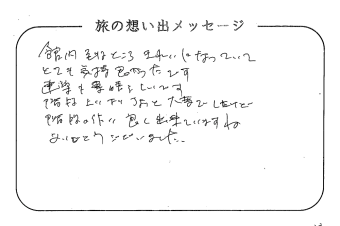 旅の想い出メッセージ
館内 至るところ きれいになっていて
とても気持良かったです
建築も素晴らしいです
階段 上り下り ちょっと大変でしたけど
階段の作り 良く出来ていますね
ありがとうございました